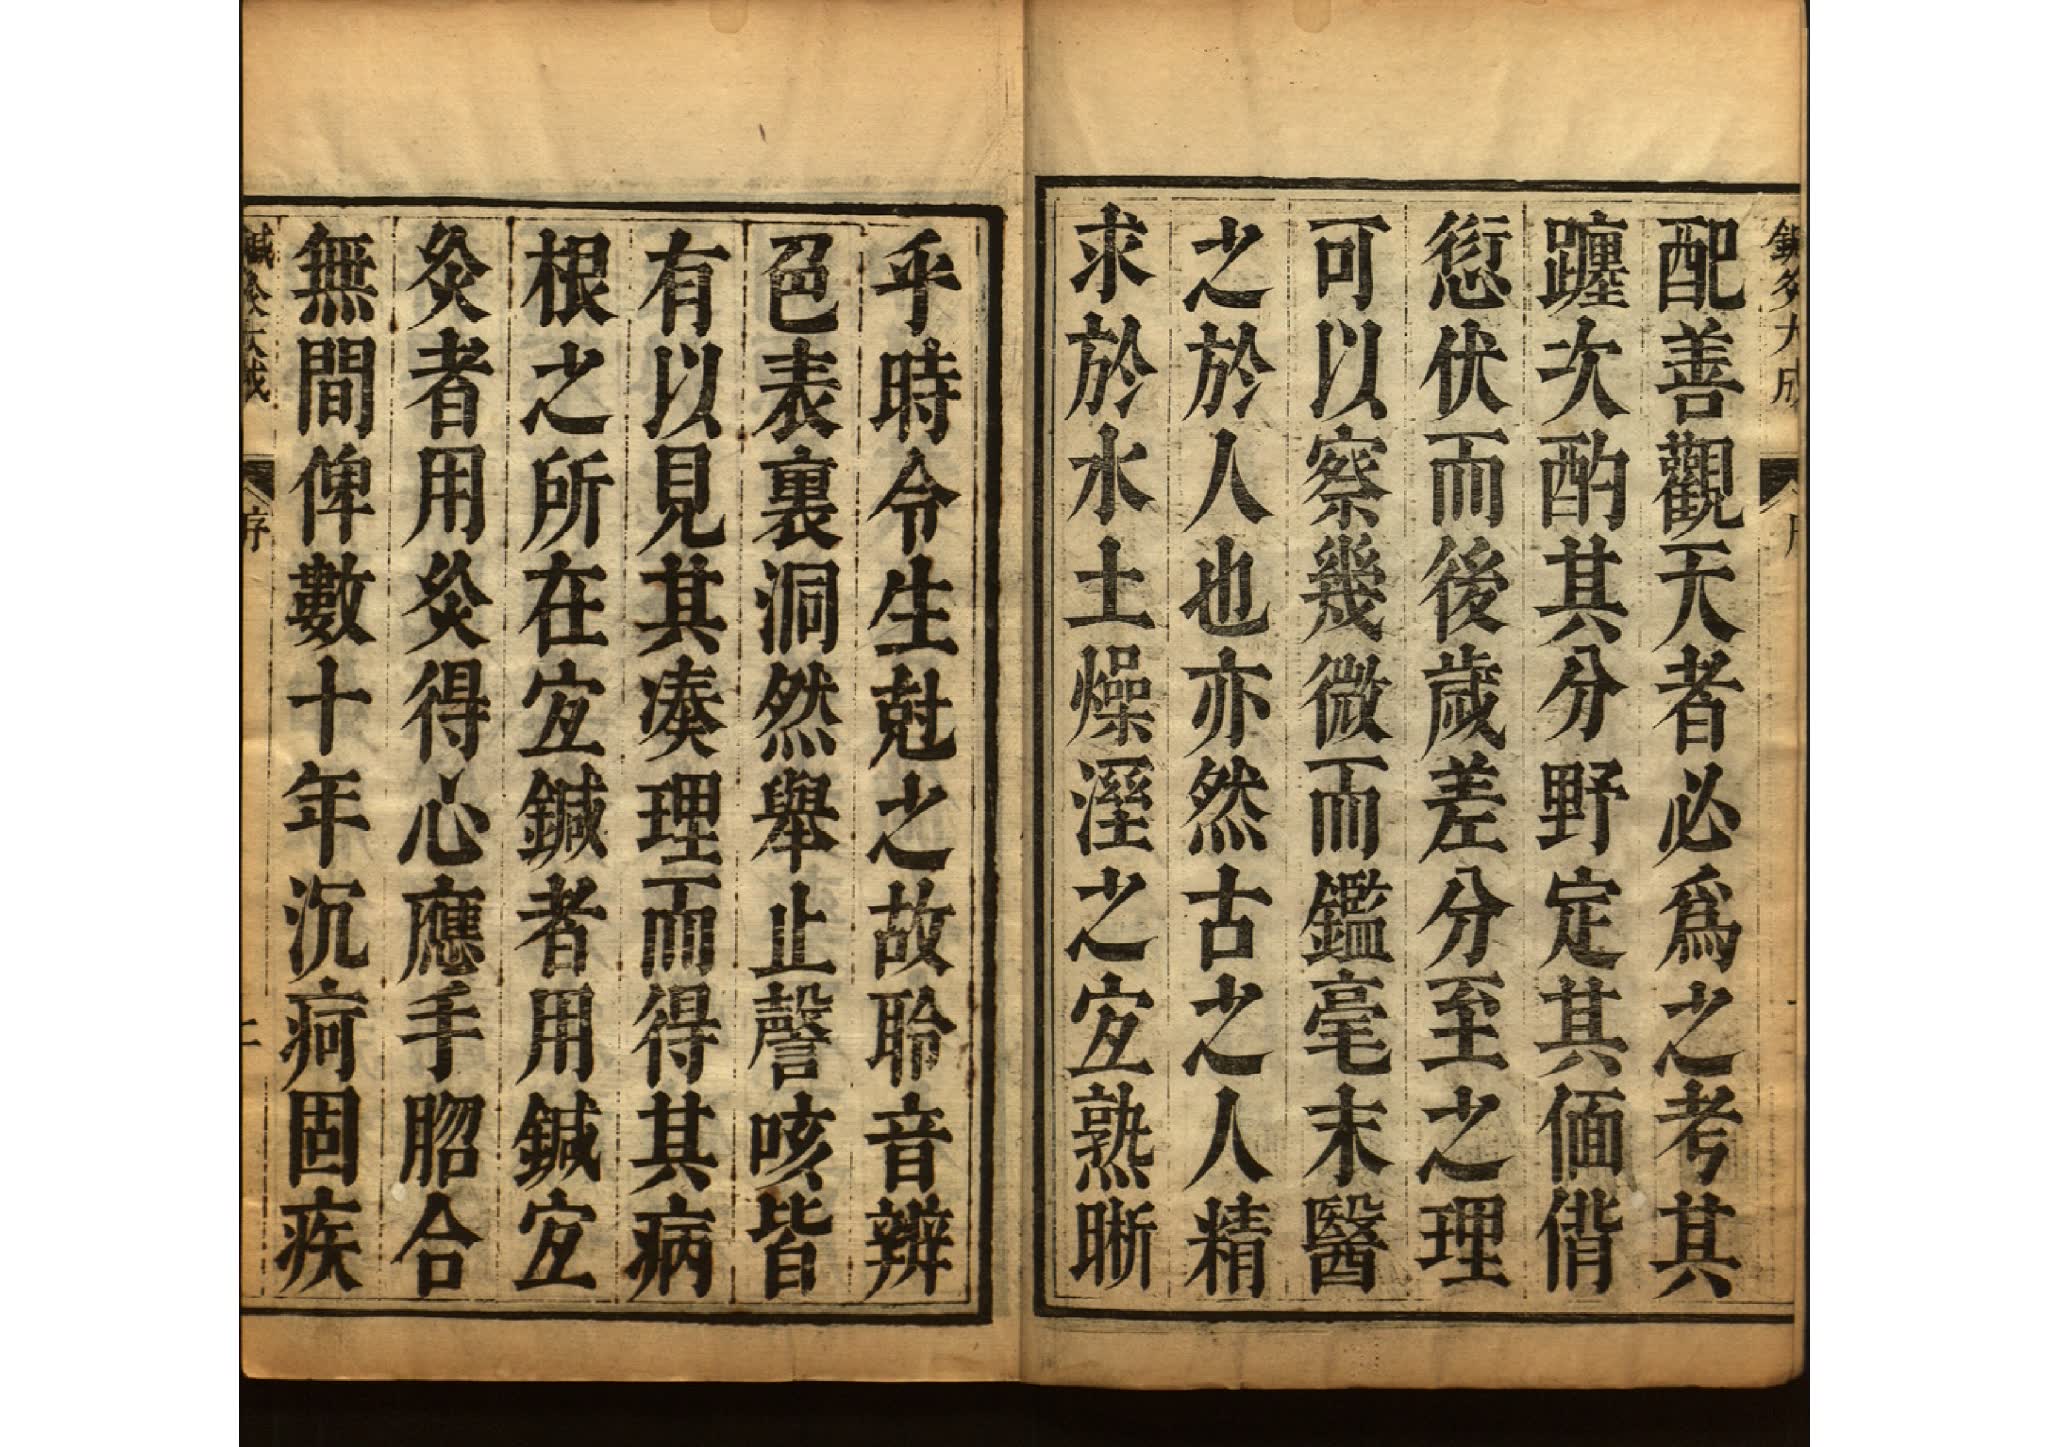 鍼灸大成
序
配善觀天者必爲之考其
躔次酌其分野定其偭偝
愆伏而後歲差分至之理
可以察幾微而鑑毫末醫
之於人也亦然古之人精
求於水土燥溼之宐熟晰
乎時令生尅之故聆音辨
色表裏洞然舉止謦咳皆
有以見其凑理而得其病
根之所在宐鍼者用鍼宐
灸者用灸得心應手脗合
無間俾數十年沉疴固疾
鍼灸大成
序
二